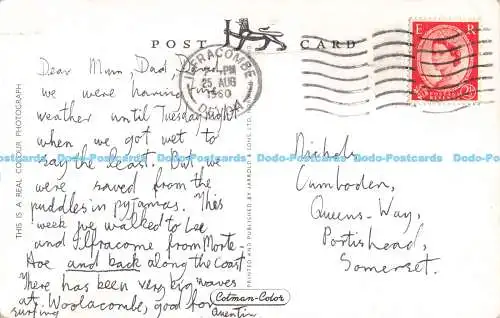 POST CARD
ILFRACOMBE
PM
25 AUG
1960
DEVON
E R
POSTAGE
REVENUE
2½D
THIS IS A REAL COLOUR PHOTOGRAPH
Dear Mum, Dad,
we were having fine
weather until Tuesday night
when we got wet to
say the least. But we
were saved from the
puddles in pyjamas. This
week we walked to Lee
and Ilfracome from Morte-
Hoe and back along the Coast
There has been very big waves
at Woolacombe, good for
surfing
Quentin
Cotman-Color
PRINTED AND PUBLISHED BY JARROLD & SONS, LTD.
Nichols
Cumboden,
Queens-Way,
Portishead,
Somerset.
Dado-Postcards Dado-Postcards Dado-Postcards Dado-Postcards Dado-Postcards Dado-Postcards